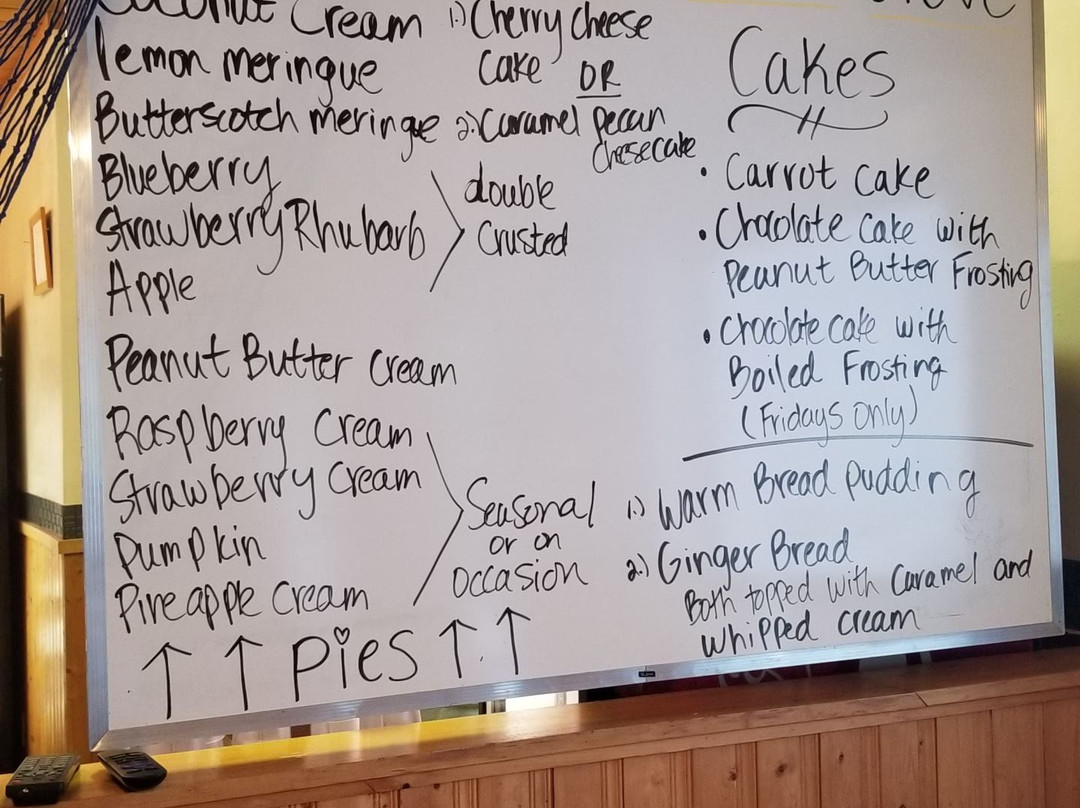 Coconut Cream
lemon meringue
Butterscotch meringue
Blueberry
Strawberry Rhubarb
Apple
double
Crusted
Peanut Butter Cream
Raspberry Cream
Strawberry Cream
Pumpkin
Pineapple Cream
Seasonal
or on
occasion
↑ ↑ Pies ↑ ↑
1.) Cherry cheese
cake OR
2.) Caramel pecan
cheesecake
Cakes
• Carrot cake
• Chocolate cake with
Peanut Butter Frosting
• Chocolate cake with
Boiled Frosting
(Fridays only)
1.) Warm Bread pudding
2.) Ginger Bread
Both topped with Caramel and
whipped cream